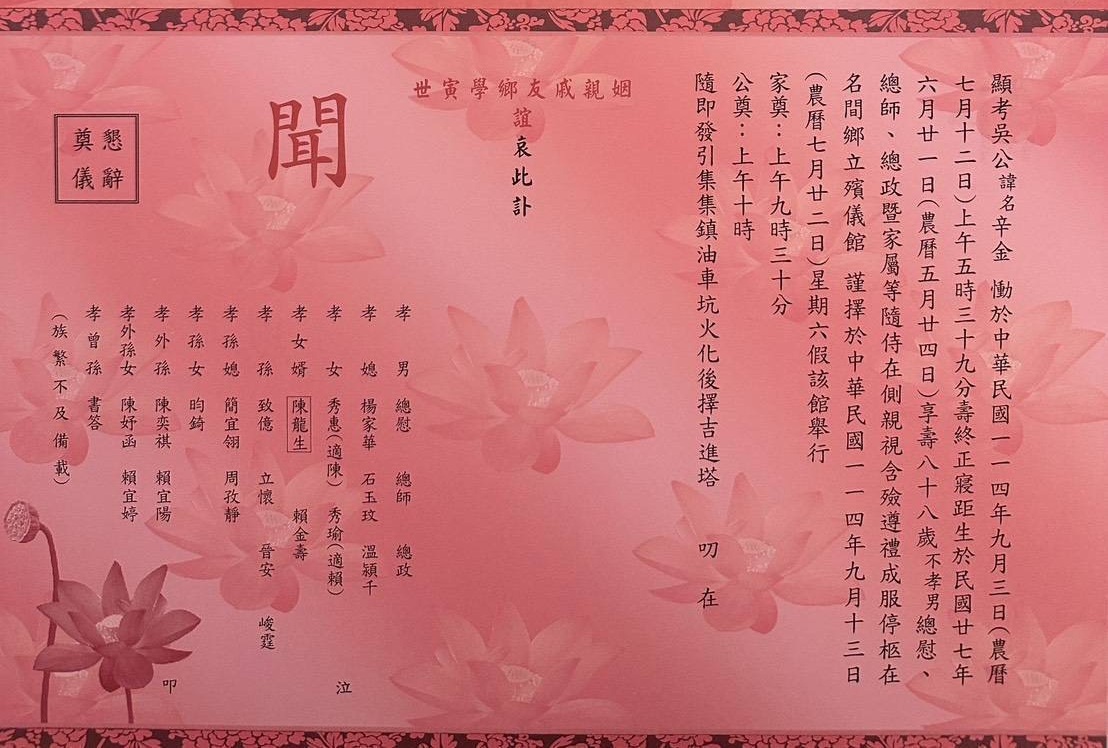 顯考吳公諱名辛金 慟於中華民國一一四年九月三日(農曆
七月十二日)上午五時三十九分壽終正寢距生於民國廿七年
六月廿一日(農曆五月廿四日)享壽八十八歲不孝男總慰、
總師、總政暨家屬等隨侍在側親視含殮遵禮成服停柩在
名間鄉立殯儀館 謹擇於中華民國一一四年九月十三日
(農曆七月廿二日)星期六假該館舉行
家奠：上午九時三十分
公奠：上午十時
隨即發引集集鎮油車坑火化後擇吉進塔 叨 在
姻親戚友鄉學寅世
誼哀此訃
聞
孝男 總慰 總師 總政
孝媳 楊家華 石玉玟 溫潁千
孝女 秀惠(適陳) 秀瑜(適賴) 泣
孝女婿 陳龍生 賴金壽
孝孫 致億 立懷 晉安 峻霆
孝孫媳 簡宜翎 周孜靜
孝孫女 昀錡
孝外孫 陳奕祺 賴宜陽 叩
孝外孫女 陳妤函 賴宜婷
孝曾孫 書答
(族繁不及備載)
懇辭
奠儀